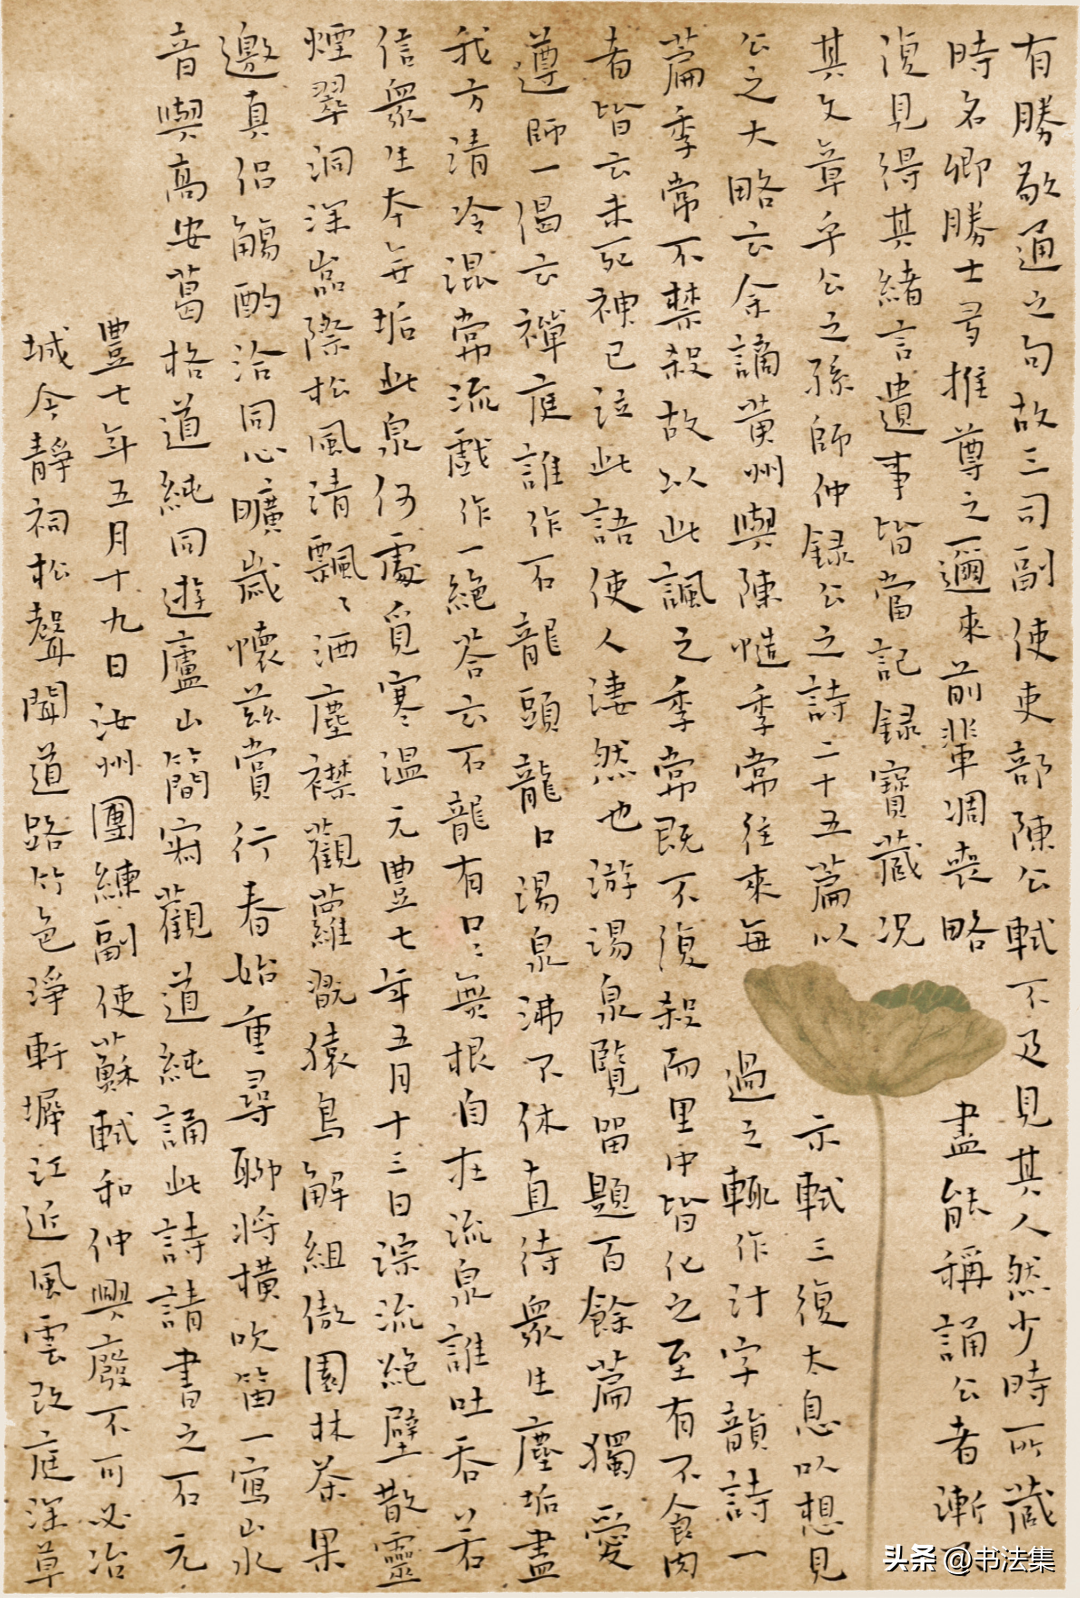 有勝敬通之句故三司副使吏部陳公軾不及見其人然少時所藏
時名卿勝士多推尊之邇來前輩凋喪略盡能稱誦公者漸
復見得其緒言遺事皆當記録寶藏况
其文章乎公之孫師仲録公之詩二十五篇以示軾三復太息以想見
公之大略云余謫黄州與陳慥季常往來每過之輒作汁字韻詩一
篇季常不禁殺故以此諷之季常既不復殺而里中皆化之至有不食肉
者皆云未死神已泣此語使人淒然也游湯泉覽留題百餘篇獨愛
遵師一偈云禪庭誰作石龍頭龍口湯泉沸不休直待衆生塵垢盡
我方清冷混常流戲作一絶答云石龍有口口無根自在流泉誰吐吞若
信衆生本無垢此泉何處覓寒温元豐七年五月十三日淙流絶壁散靈
煙翠洞深巖際松風清飄飄洒塵襟觀蘿翫猿鳥解組傲園林茶果
邀真侣觴酌洽同心曠歲懷兹賞行春始重尋聊將横吹笛一寫山水
音與高安葛格道純同遊廬山簡寂觀道純誦此詩請書之石元
豐七年五月十九日汝州團練副使蘇軾和仲興廢不可必冶
城今静祠松聲聞道路竹色浄軒墀江近風雲改庭深草
头条 @书法集